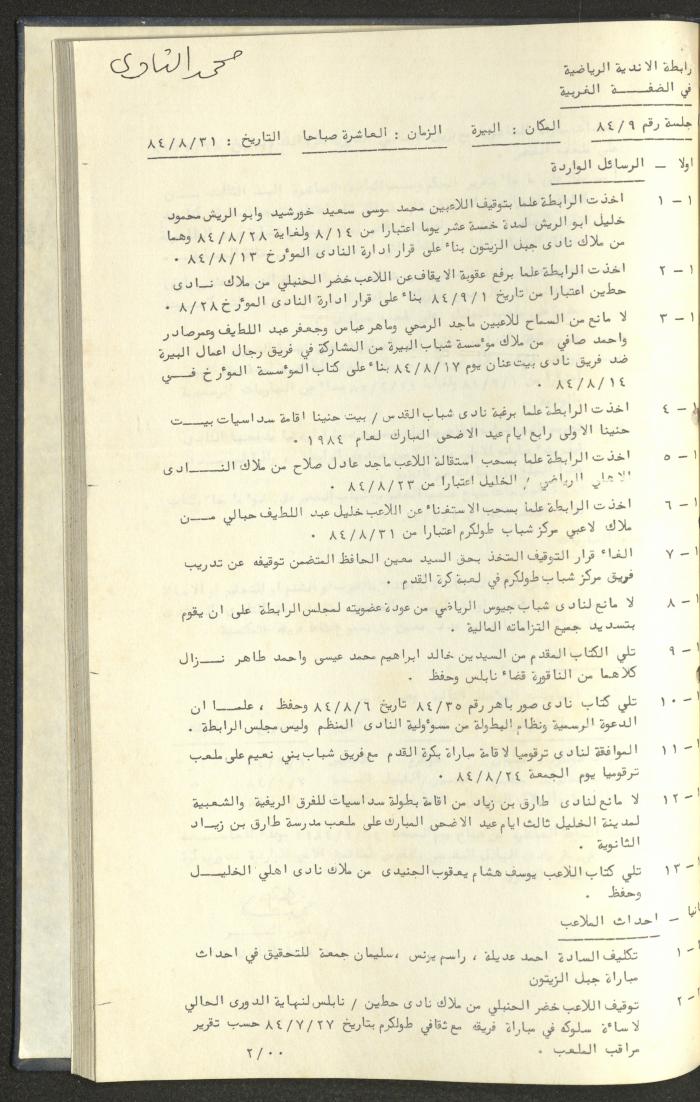 محمد الناوى
رابطة الاندية الرياضية
في الضفـــة الغربية
جلسة رقم ٨٤/٩ المكان : البيرة الزمان : العاشرة صباحا التاريخ : ٨٤/٨/٣١
اولا – الرسائل الواردة
١ - ١ اخذت الرابطة علما بتوقيف اللاعبين محمد موسى سعيد خورشيد وابو الريش محمود
خليل ابو الريش لمدة خمسة عشر يوما اعتبارا من ٨/١٤ ولغاية ٨٤/٨/٢٨ وهما
من ملاك نادى جبل الزيتون بناء على قرار ادارة النادى المؤرخ ٨٤/٨/١٣ .
١ - ٢ اخذت الرابطة علما برفع عقوبة الايقاف عن اللاعب خضر الحنبلي من ملاك نــادى
حطين اعتبارا من تاريخ ٨٤/٩/١ بناء على قرار ادارة النادى المؤرخ ٨/٢٨ .
١ - ٣ لا مانع من السماح للاعبين ماجد الرمحي وماهر عباس وجعفر عبد اللطيف وعمر صادر
واحمد صافي من ملاك مؤسسة شباب البيرة من المشاركة في فريق رجال اعمال البيرة
ضد فريق نادى بيت عنان يوم ٨٤/٨/١٧ بناء على كتاب المؤسسة المؤرخ فـــي
٨٤/٨/١٤ .
١ - ٤ اخذت الرابطة علما برغبة نادى شباب القدس / بيت حنينا اقامة سداسيات بيـــت
حنينا الاولى رابع ايام عيد الاضحى المبارك لعام ١٩٨٤ .
١ - ٥ اخذت الرابطة علما بسحب استقالة اللاعب ماجد عادل صلاح من ملاك النــــادى
الاهلي الرياضي / الخليل اعتبارا من ٨٤/٨/٢٣ .
١ - ٦ اخذت الرابطة علما بسحب الاستغناء عن اللاعب خليل عبد اللطيف حبالي مـــن
ملاك لاعبي مركز شباب طولكرم اعتبارا من ٨٤/٨/٣١ .
١ - ٧ الغاء قرار التوقيف المتخذ بحق السيد معين الحافظ المتضمن توقيفه عن تدريب
فريق مركز شباب طولكرم في لعبة كرة القدم .
١ - ٨ لا مانع لنادى شباب جيوس الرياضي من عودة عضويته لمجلس الرابطة على ان يقوم
بتسديد جميع التزاماته المالية .
١ - ٩ تلي الكتاب المقدم من السيدين خالد ابراهيم محمد عيسى واحمد طاهر نـــزال
كلاهما من الناقورة قضاء نابلس وحفظ .
١ - ١٠ تلي كتاب نادى صور باهر رقم ٨٤/٣٥ تاريخ ٨٤/٨/٦ وحفظ ، علمـــا ان
الدعوة الرسمية ونظام البطولة من مسؤولية النادى المنظم وليس مجلس الرابطة .
١ - ١١ الموافقة لنادى ترقوميا لاقامة مباراة بكرة القدم مع فريق شباب بني نعيم على ملعب
ترقوميا يوم الجمعة ٨٤/٨/٢٤ .
١ - ١٢ لا مانع لنادى طارق بن زياد من اقامة بطولة سداسيات للفرق الريفية والشعبية
لمدينة الخليل ثالث ايام عيد الاضحى المبارك على ملعب مدرسة طارق بن زيــاد
الثانوية .
١ - ١٣ تلي كتاب اللاعب يوسف هشام يعقوب الجنيدى من ملاك نادى اهلي الخليـــل
وحفظ .
انيا – احداث الملاعب
١ - تكليف السادة احمد عديلة ، راسم يونس ، سليمان جمعة للتحقيق في احداث
مباراة جبل الزيتون
٢ - توقيف اللاعب خضر الحنبلي من ملاك نادى حطين / نابلس لنهاية الدورى الحالي
لاساءة سلوكه في مباراة فريقه مع ثقافي طولكرم بتاريخ ٨٤/٧/٢٧ حسب تقرير
مراقب الملعب .
٢/٠٠